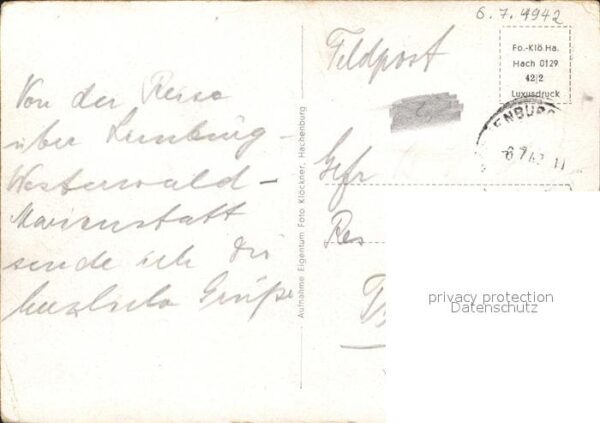 6.7.1942
Feldpost
Fo.-Klö Ha.
Hach 0129
42|2
Luxusdruck
ENBURG
-6.7.42.11
Von der Reise
über Limburg -
Westerwald -
Marienstatt
sende ich Dir
herzliche Grüße
Gefr
Res
Aufnahme Eigentum Foto Klöckner, Hachenburg
privacy protection
Datenschutz